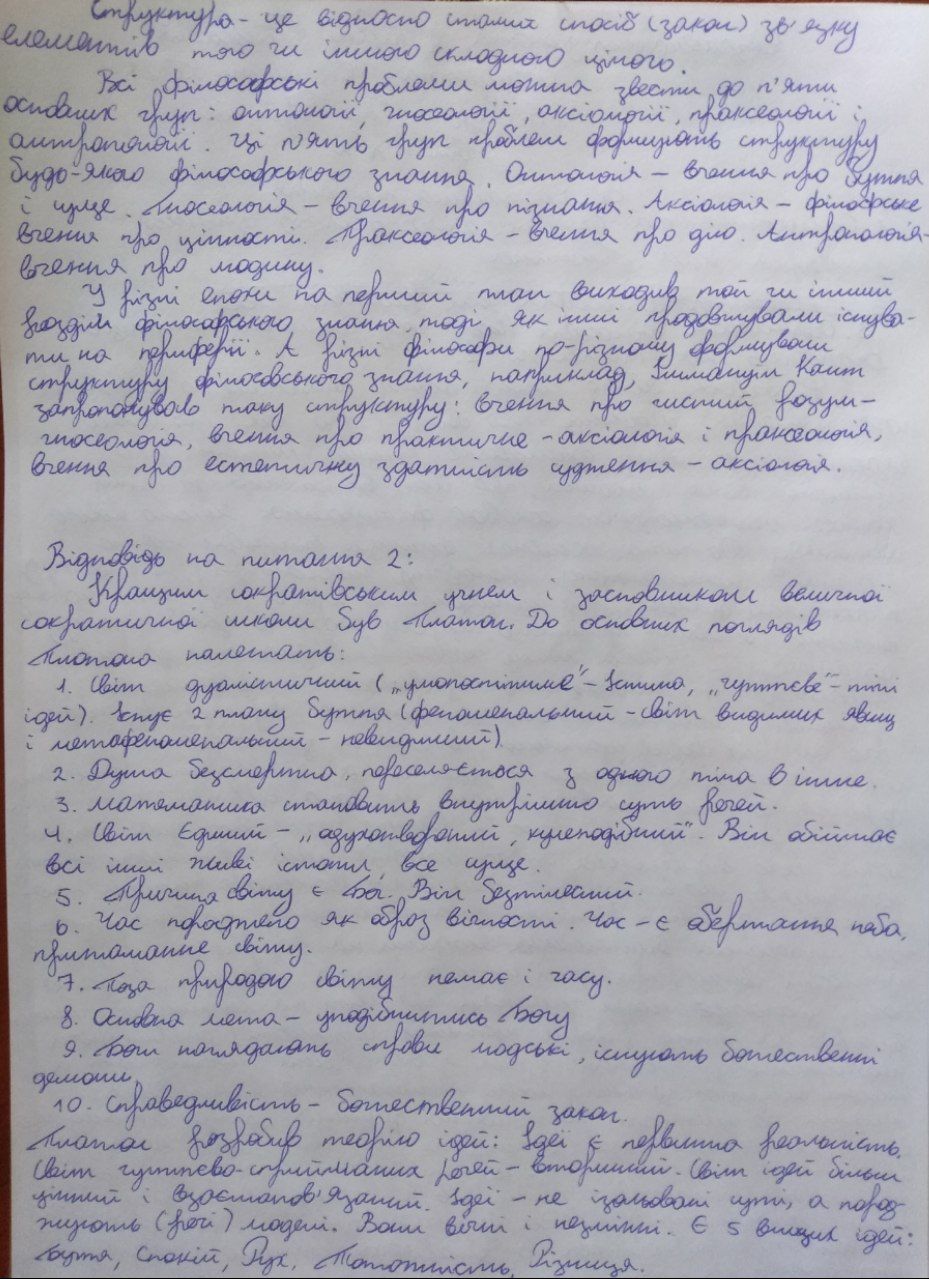 Структура - це відносно сталих спосіб (закон) зв'язку
елементів того чи іншого складного цілого.
Всі філософські проблеми можна звести до п'яти
основних груп: онтології, гносеології, аксіології, праксеології і
антропології. Ці п'ять груп проблем формують структуру
будь-якого філософського знання. Онтологія - вчення про буття
і суще. Гносеологія - вчення про пізнання. Аксіологія - філософське
вчення про цінності. Праксеологія - вчення про дію. Антропологія-
вчення про людину.
У різні епохи на перший план виходив той чи інший
розділ філософського знання, тоді як інші продовжували існува-
ти на периферії. А різні філософи по-різному формували
структуру філософського знання, наприклад, Іммануїл Кант
запропонував таку структуру: вчення про чистий розум-
гносеологія, вчення про практичне - аксіологія і праксеологія,
вчення про естетичну здатність судження - аксіологія.
Відповідь на питання 2:
Кращим сократівським учнем і засновником величної
сократичної школи був Платон. До основних поглядів
Платона належать:
1. Світ дуалістичний („умопостижиме" - Істина, „чуттєве" - тіні
ідей). Існує 2 плану буття (феноменальний - світ видимих явищ
і метафеноменальний - невидимий)
2. Душа безсмертна, переселяється з одного тіла в інше.
3. Математика становить внутрішню суть речей.
4. Світ Єдиний - „одухотворений, кулеподібний". Він обіймає
всі інші живі істоти, все суще.
5. Причина світу є Бог. Він безтілесний.
6. Час породжено як образ вічності. Час - є обертання неба,
притаманне світу.
7. Поза природою світу немає і часу.
8. Основна мета - уподібнитись Богу
9. Боги наглядають справи людські, існують божественні
демони.
10. Справедливість - божественний закон.
Платон розробив теорію ідей: Ідеї є первинна реальність.
Світ чуттєво-сприйманих речей - вторинний. Світ ідей більш
цінний і взаємопов'язаний. Ідеї - не ізольовані суті, а пород-
жують (речі) моделі. Вони вічні і незмінні. Є 5 вищих ідей:
Буття, Спокій, Рух, Тотожність, Різниця.